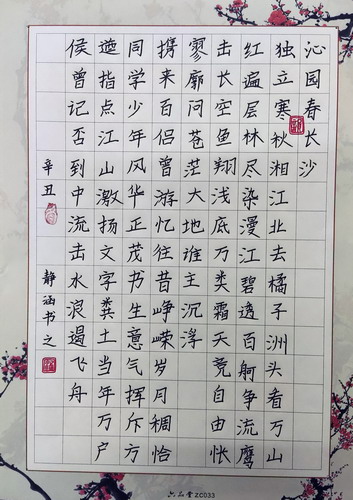 沁园春长沙
独立寒秋湘江北去橘子洲头看万山
红遍层林尽染漫江碧透百舸争流鹰
击长空鱼翔浅底万类霜天竞自由怅
寥廓问苍茫大地谁主沉浮
携来百侣曾游忆往昔峥嵘岁月稠恰
同学少年风华正茂书生意气挥斥方
遒指点江山激扬文字粪土当年万户
侯曾记否到中流击水浪遏飞舟
辛丑 静涵书之
六品堂 ZC033